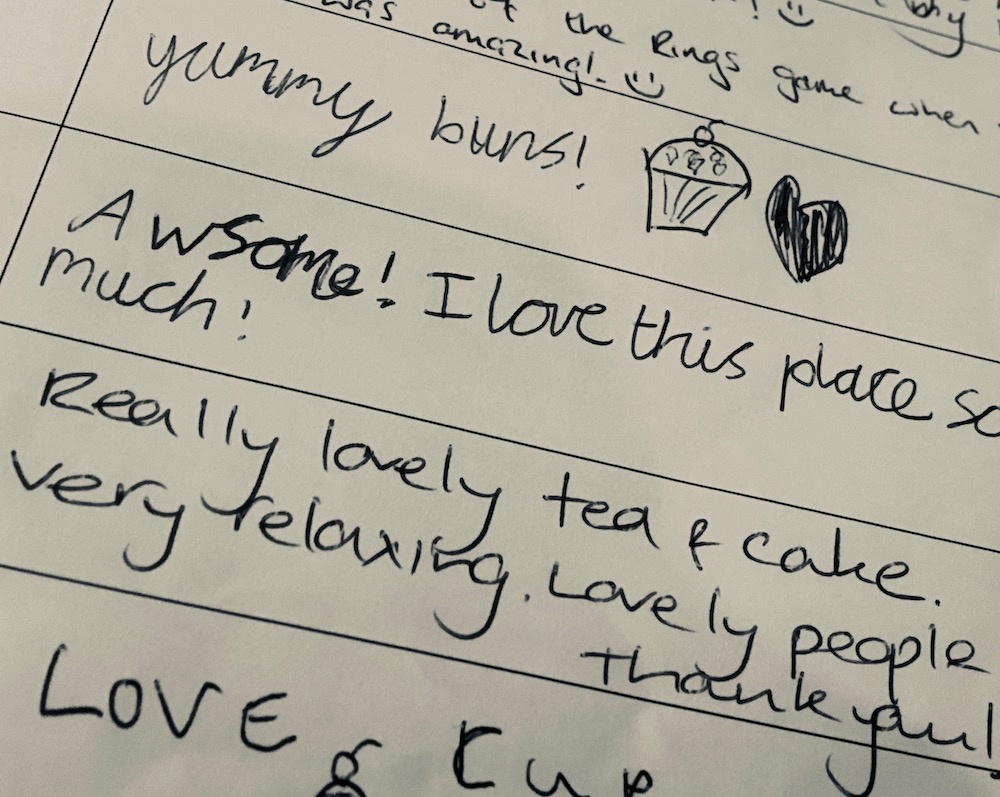 the Rings game when
was amazing!
yummy buns!
Awsome! I love this place so
much!
Really lovely tea & cake.
very relaxing. Lovely people
Thank you!
LOVE